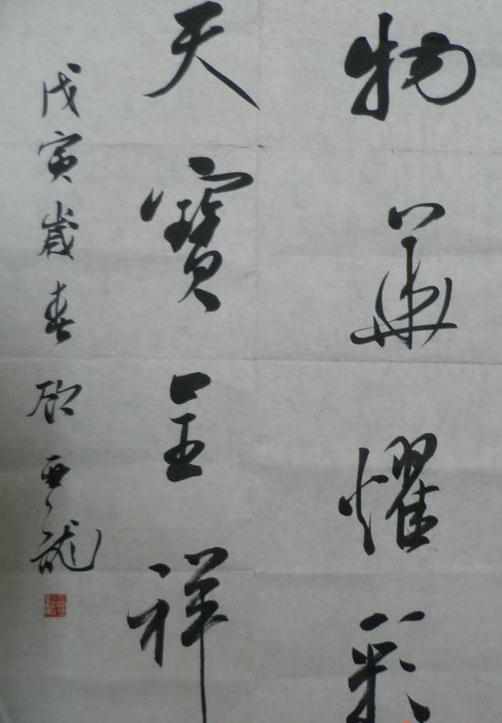 物華耀彩
天寶呈祥
戊寅歲春顧亞龍